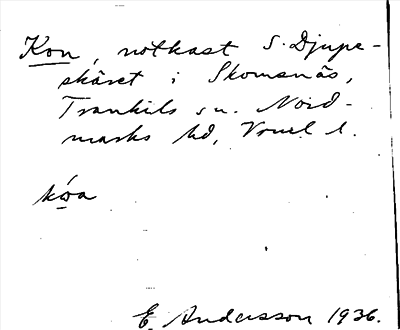 Kon, notkast S. Djupe-
skäret i Skomsnäs,
Trankils sn. Nord-
marks hd, Vrml l.
kóa
E. Andersson 1936.